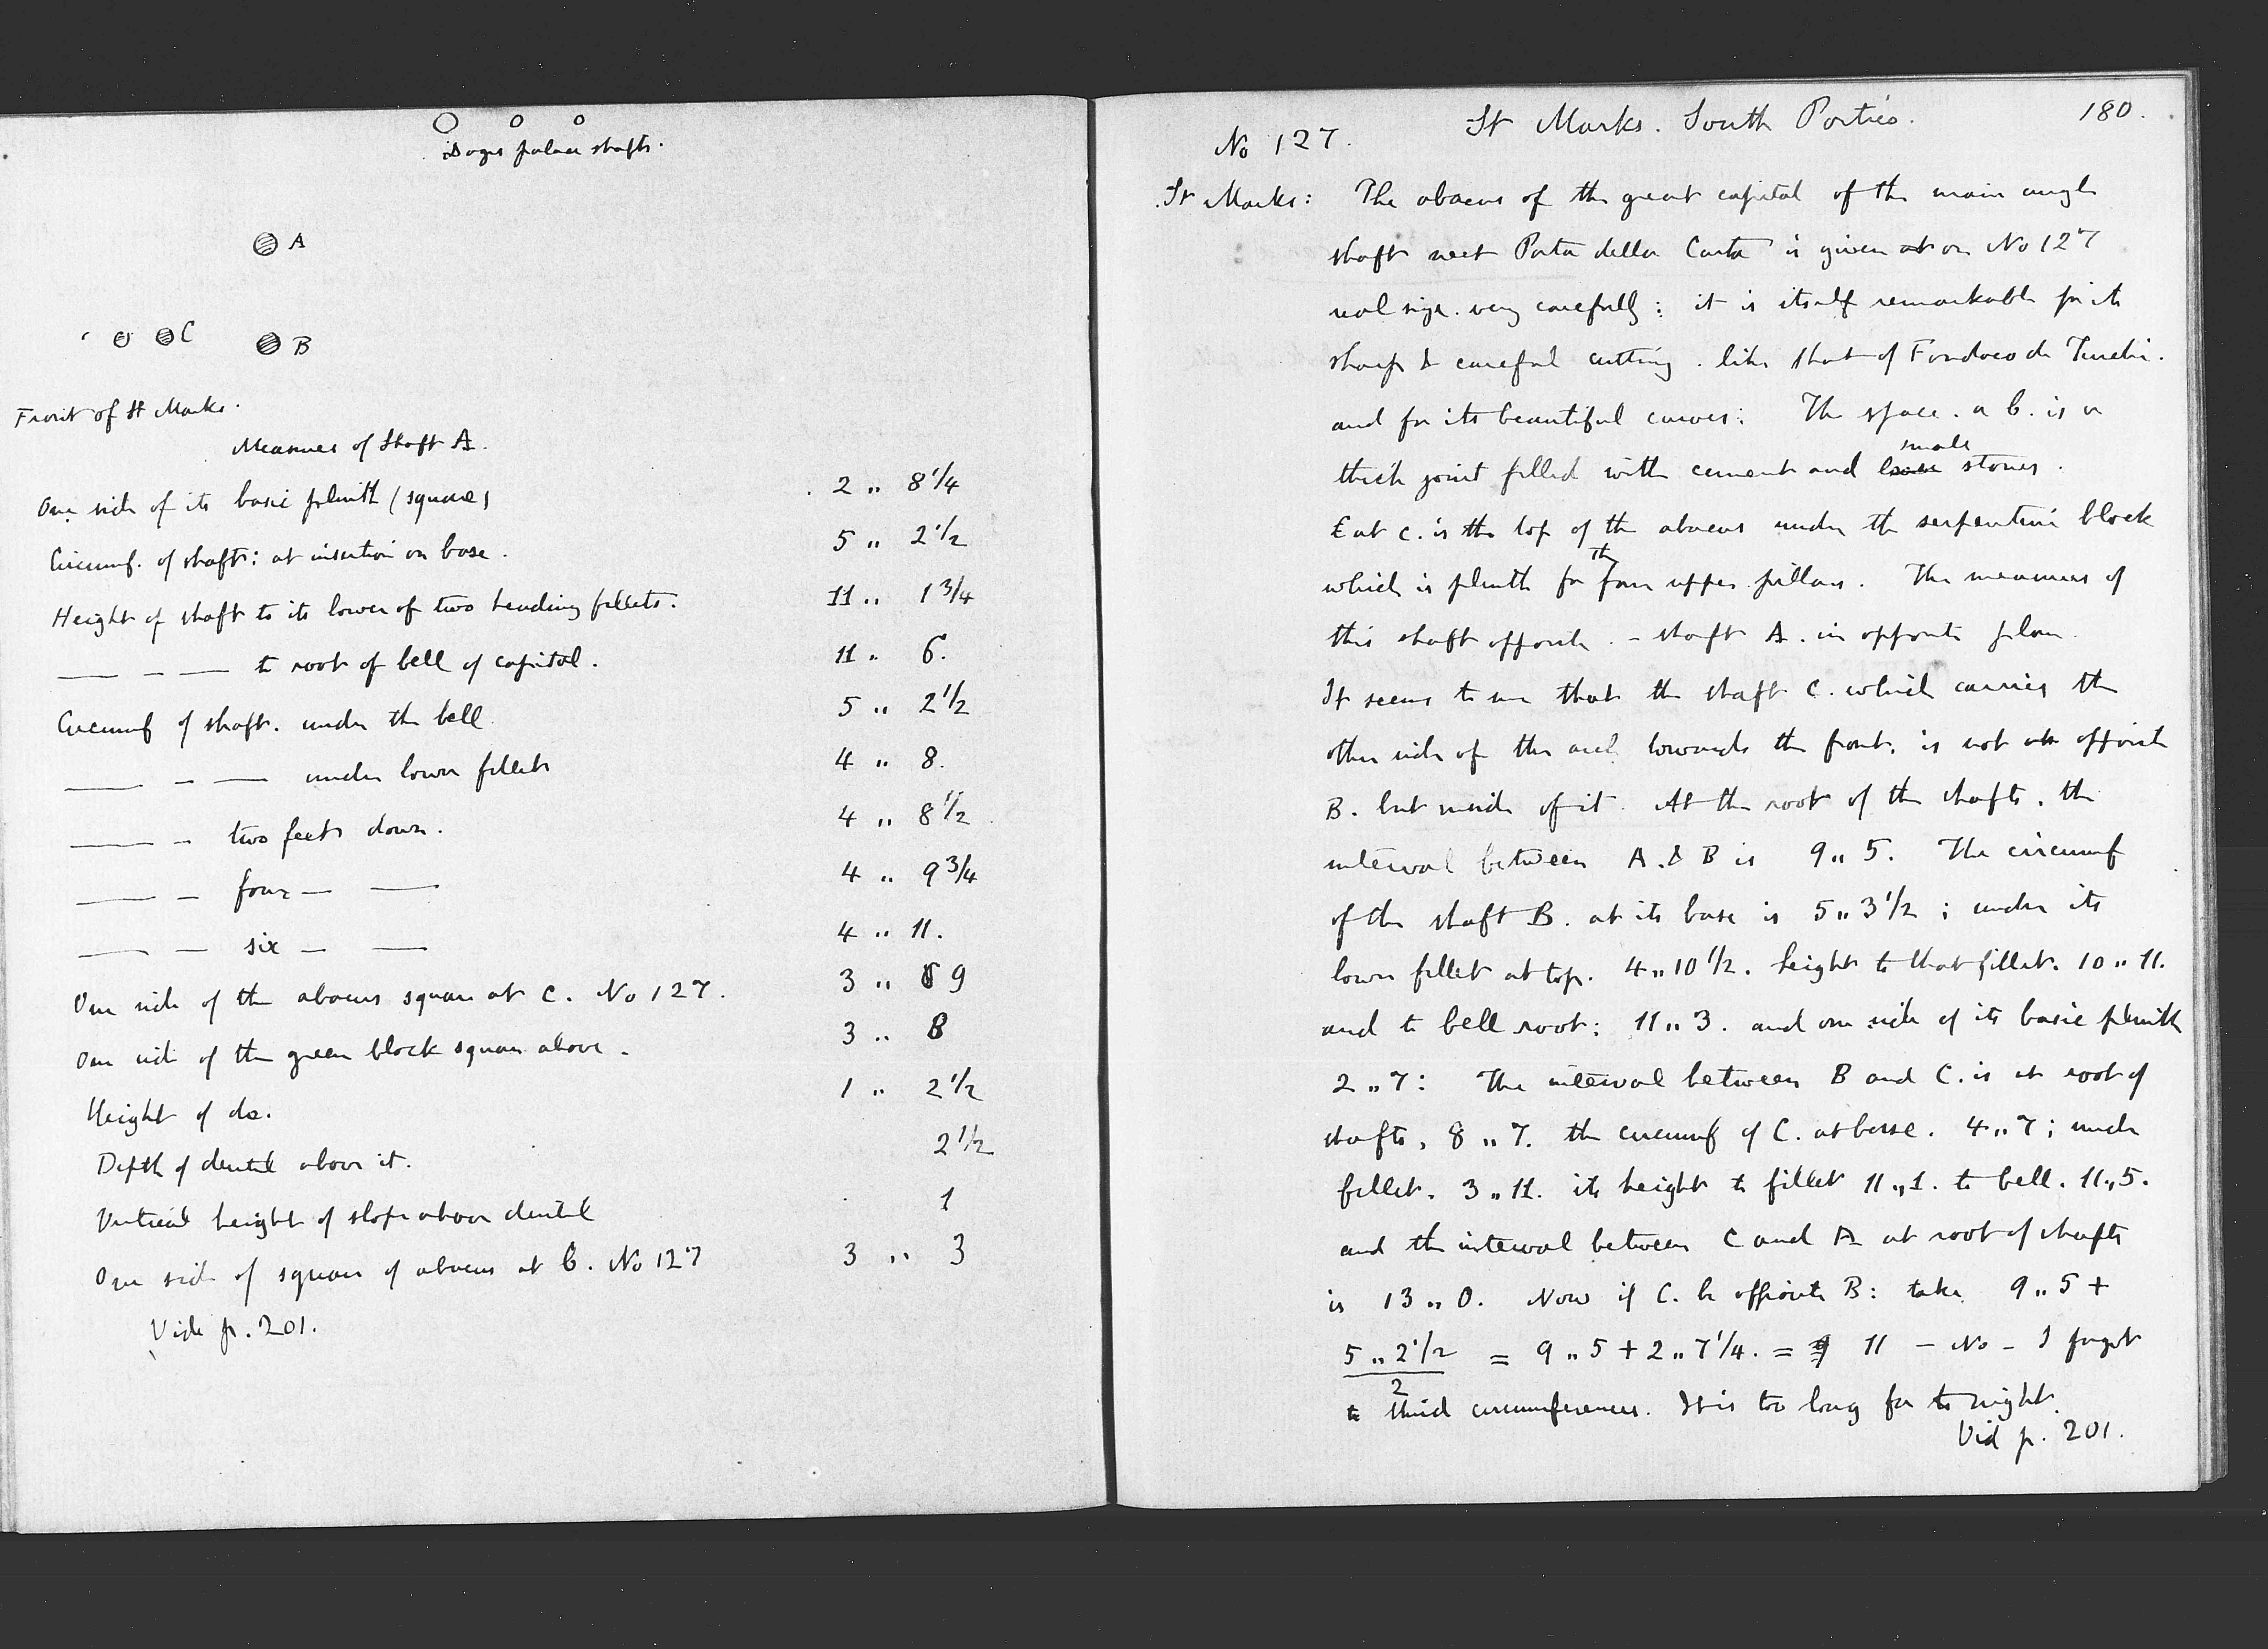 Doges palace shafts.
A
C
B
Front of St Marks.
Measures of Shaft A.
One side of its basic plinth (square) 2 ,, 8 1/4
Circumf. of shafts: at insertion on base. 5 ,, 2 1/2
Height of shaft to its lower of two heading fillets. 11 ,, 1 3/4
—— – —— to root of bell of capital. 11 ,, 6.
Circumf of shaft. under the bell 5 ,, 2 1/2
—— – —— under lower fillet 4 ,, 8.
—— – two feet down. 4 ,, 8 1/2
—— – four – —— 4 ,, 9 3/4
—— – six – —— 4 ,, 11.
One side of the abacus square at c. No 127. 3 ,, 9
One side of the green block square above. 3 ,, 8
Height of do. 1 ,, 2 1/2
Depth of dentil above it. 2 1/2
Vertical height of slope above dentil 1
One side of square of abacus at b. No 127 3 ,, 3
Vide p. 201.
St Marks. South Portico. 180.
No 127.
St Marks: The abacus of the great capital of the main angle
shaft next Porta della Carta is given at on No 127
real size. very carefully: it is itself remarkable for its
sharp & careful cutting. like that of Fondaco de Turchi.
and for its beautiful curves: The space. a b. is a
thick joint filled with cement and small stones.
& at c. is the top of the abacus under the serpentine block
which is plinth for the four upper pillars. The measures of
this shaft opposite. – shaft A. in opposite plan.
It seems to me that the shaft C. which carries the
other side of the arch towards the front, is not opposite
B. but inside of it. At the root of the shafts, the
interval between A. & B is 9 ,, 5. The circumf
of the shaft B. at its base is 5 ,, 3 1/2 ; under its
lower fillet at top. 4 ,, 10 1/2. height to that fillet. 10 ,, 11.
and to bell root: 11 ,, 3. and one side of its basic plinth
2 ,, 7: The interval between B and C. is at root of
shafts, 8 ,, 7. the circumf of C. at base. 4 ,, 7 ; under
fillet. 3 ,, 11. its height to fillet 11 ,, 1. to bell. 11 ,, 5.
and the interval between C and A at root of shafts
is 13 ,, 0. Now if C. be opposite B: take 9 ,, 5 +
5 ,, 2 1/2 / 2 = 9 ,, 5 + 2 ,, 7 1/4. = 11 – No – I forgot
to third circumferences. It is too long for to night.
Vid p. 201.